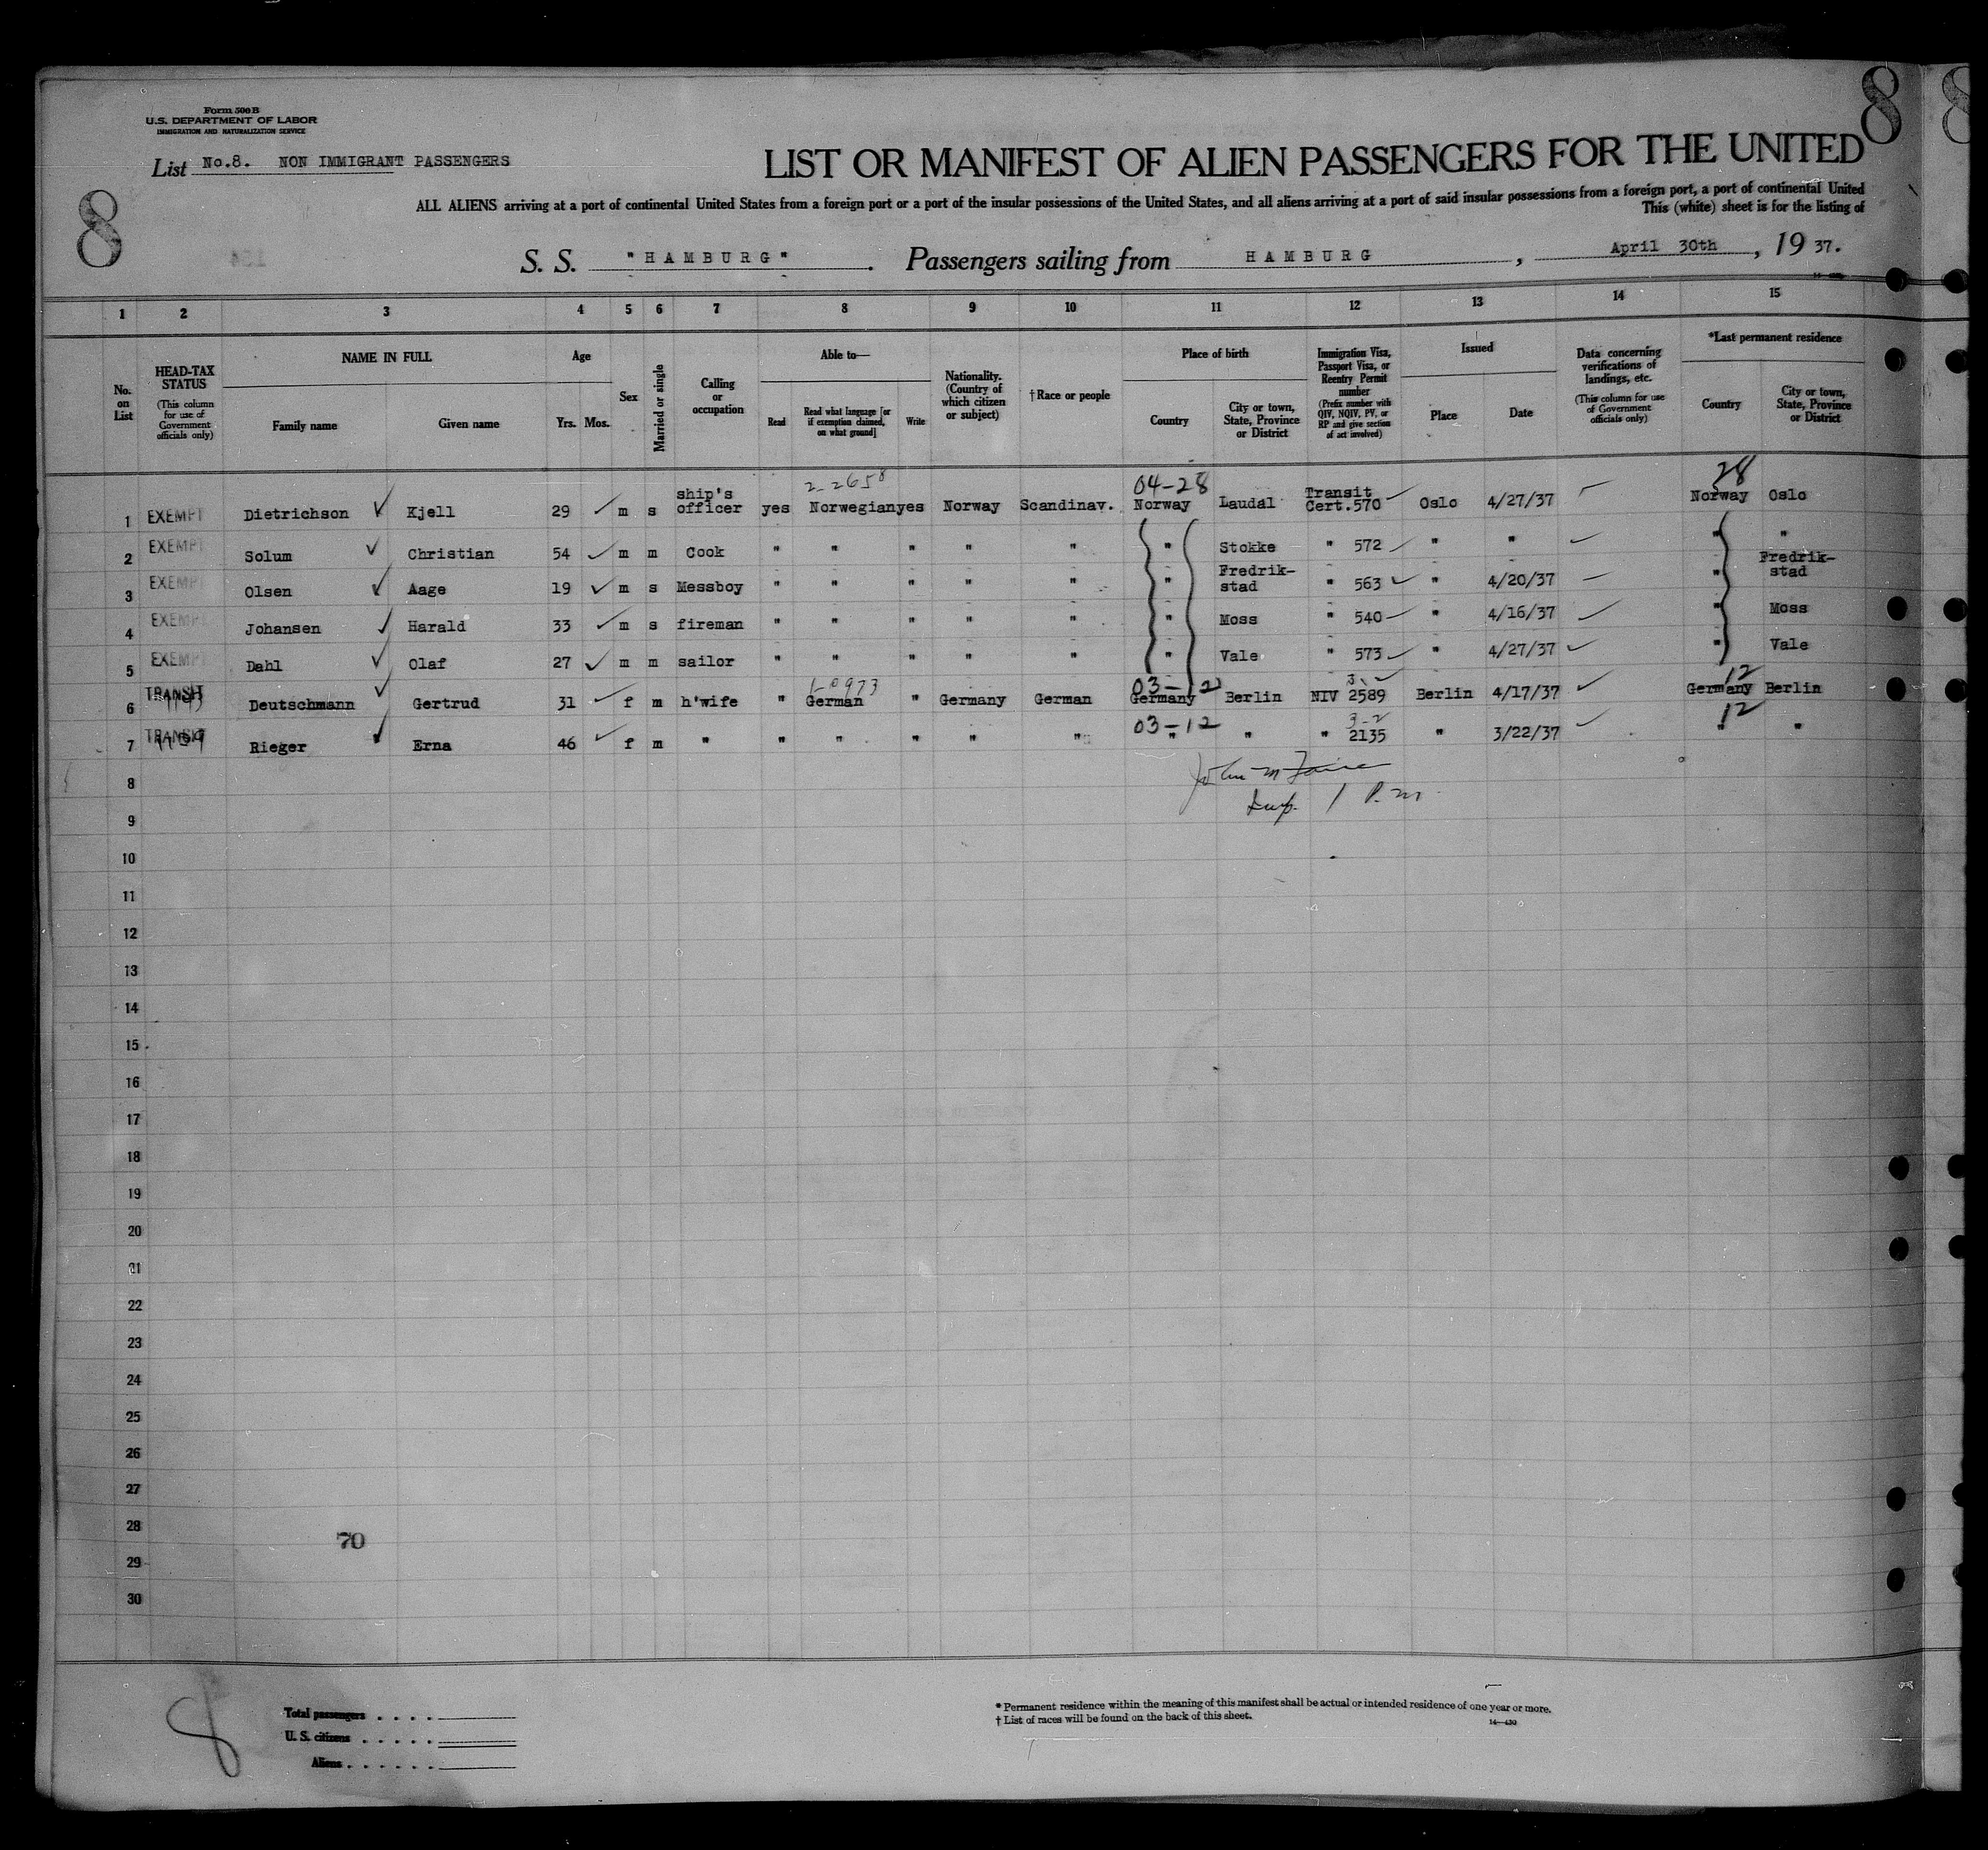 Form 500 B
U.S. DEPARTMENT OF LABOR
IMMIGRATION AND NATURALIZATION SERVICE
List No.8. NON IMMIGRANT PASSENGERS
8
8
LIST OR MANIFEST OF ALIEN PASSENGERS FOR THE UNITED
ALL ALIENS arriving at a port of continental United States from a foreign port or a port of the insular possessions of the United States, and all aliens arriving at a port of said insular possessions from a foreign port, a port of continental United
This (white) sheet is for the listing of
S. S. "HAMBURG". Passengers sailing from HAMBURG, April 30th, 1937.
1 2 3 4 5 6 7 8 9 10 11 12 13 14 15
No. on List
HEAD-TAX STATUS (This column for use of Government officials only)
NAME IN FULL Family name Given name
Age Yrs. Mos.
Sex
Married or single
Calling or occupation
Able to— Read Read what language [or if exemption claimed, on what ground] Write
Nationality. (Country of which citizen or subject)
†Race or people
Place of birth Country City or town, State, Province or District
Immigration Visa, Passport Visa, or Reentry Permit number (Prefix number with QIV, NQIV, PV, or RP and give section of act involved)
Issued Place Date
Data concerning verifications of landings, etc. (This column for use of Government officials only)
*Last permanent residence Country City or town, State, Province or District
2-2658 04-28 28
1 EXEMPT Dietrichson Kjell 29 m s ship's officer yes Norwegian yes Norway Scandinav. Norway Laudal Transit Cert.570 Oslo 4/27/37 Norway Oslo
2 EXEMPT Solum Christian 54 m m Cook " " " " " " Stokke " 572 " " " "
3 EXEMPT Olsen Aage 19 m s Messboy " " " " " " Fredrik-stad " 563 " 4/20/37 " Fredrik-stad
4 EXEMPT Johansen Harald 33 m s fireman " " " " " " Moss " 540 " 4/16/37 " Moss
5 EXEMPT Dahl Olaf 27 m m sailor " " " " " " Vale " 573 " 4/27/37 " Vale
1-0973 03-12 12
6 TRANSIT Deutschmann Gertrud 31 f m h'wife " German " Germany German Germany Berlin NIV 2589 Berlin 4/17/37 Germany Berlin
03-12 3-2 12
7 TRANSIT Rieger Erna 46 f m " " " " " " " " " 2135 " 3/22/37 " "
8
Insp. 1 P.m.
9
10
11
12
13
14
15
16
17
18
19
20
21
22
23
24
25
26
27
28
70
29
30
8
Total passengers . . . .
U. S. citizens . . . . .
Aliens . . . . . .
* Permanent residence within the meaning of this manifest shall be actual or intended residence of one year or more.
† List of races will be found on the back of this sheet.
14—430